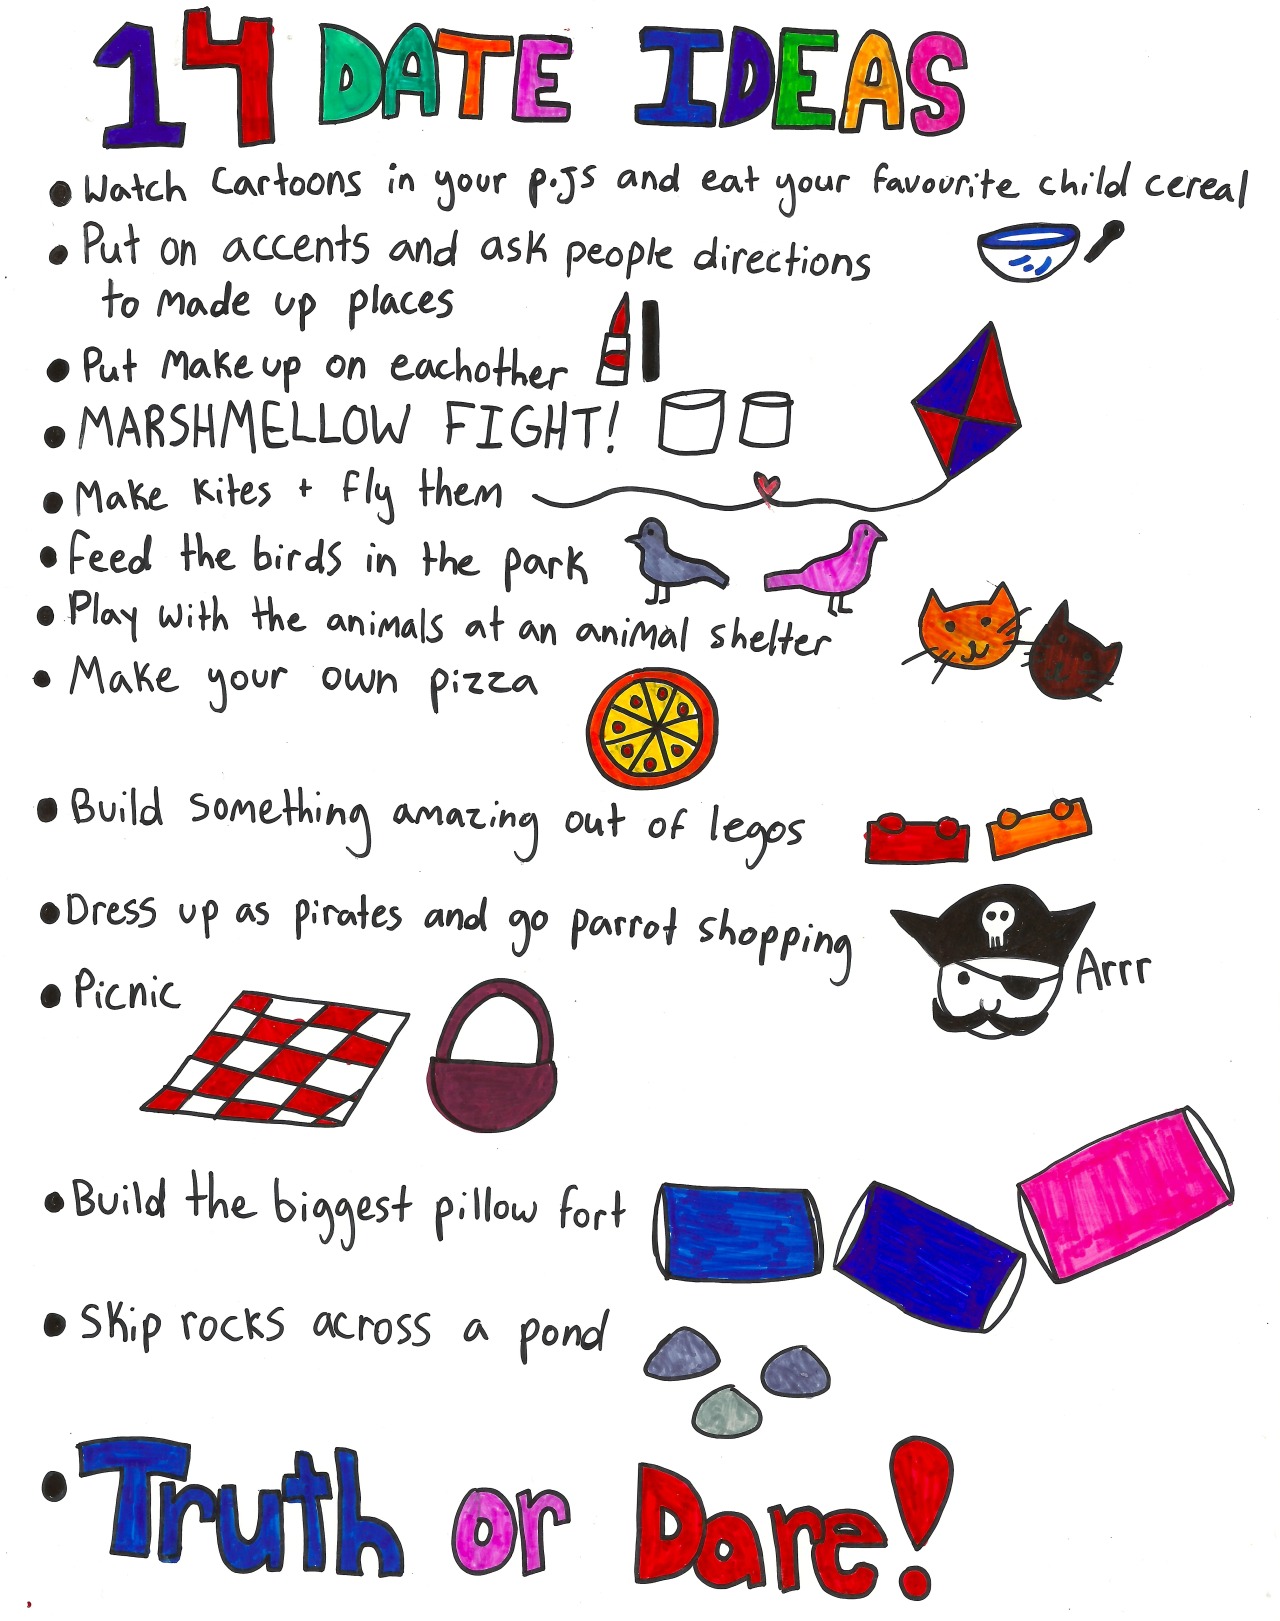 14 DATE IDEAS
• Watch Cartoons in your p.Js and eat your favourite child cereal
• Put on accents and ask people directions
to made up places
• Put Makeup on eachother
• MARSHMELLOW FIGHT!
• Make Kites + fly them
• Feed the birds in the park
• Play with the animals at an animal shelter
• Make your own pizza
• Build something amazing out of legos
• Dress up as pirates and go parrot shopping
Arrr
• Picnic
• Build the biggest pillow fort
• Skip rocks across a pond
• Truth or Dare!